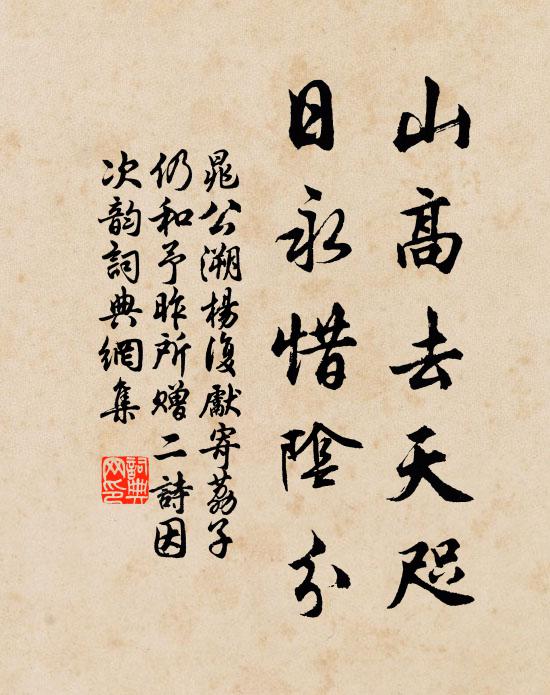 山高去天咫
日永惜陰分
晁公溯楊復獻寄荔子
仍和予昨所贈二詩因
次韵詞典網集
詞典
网印